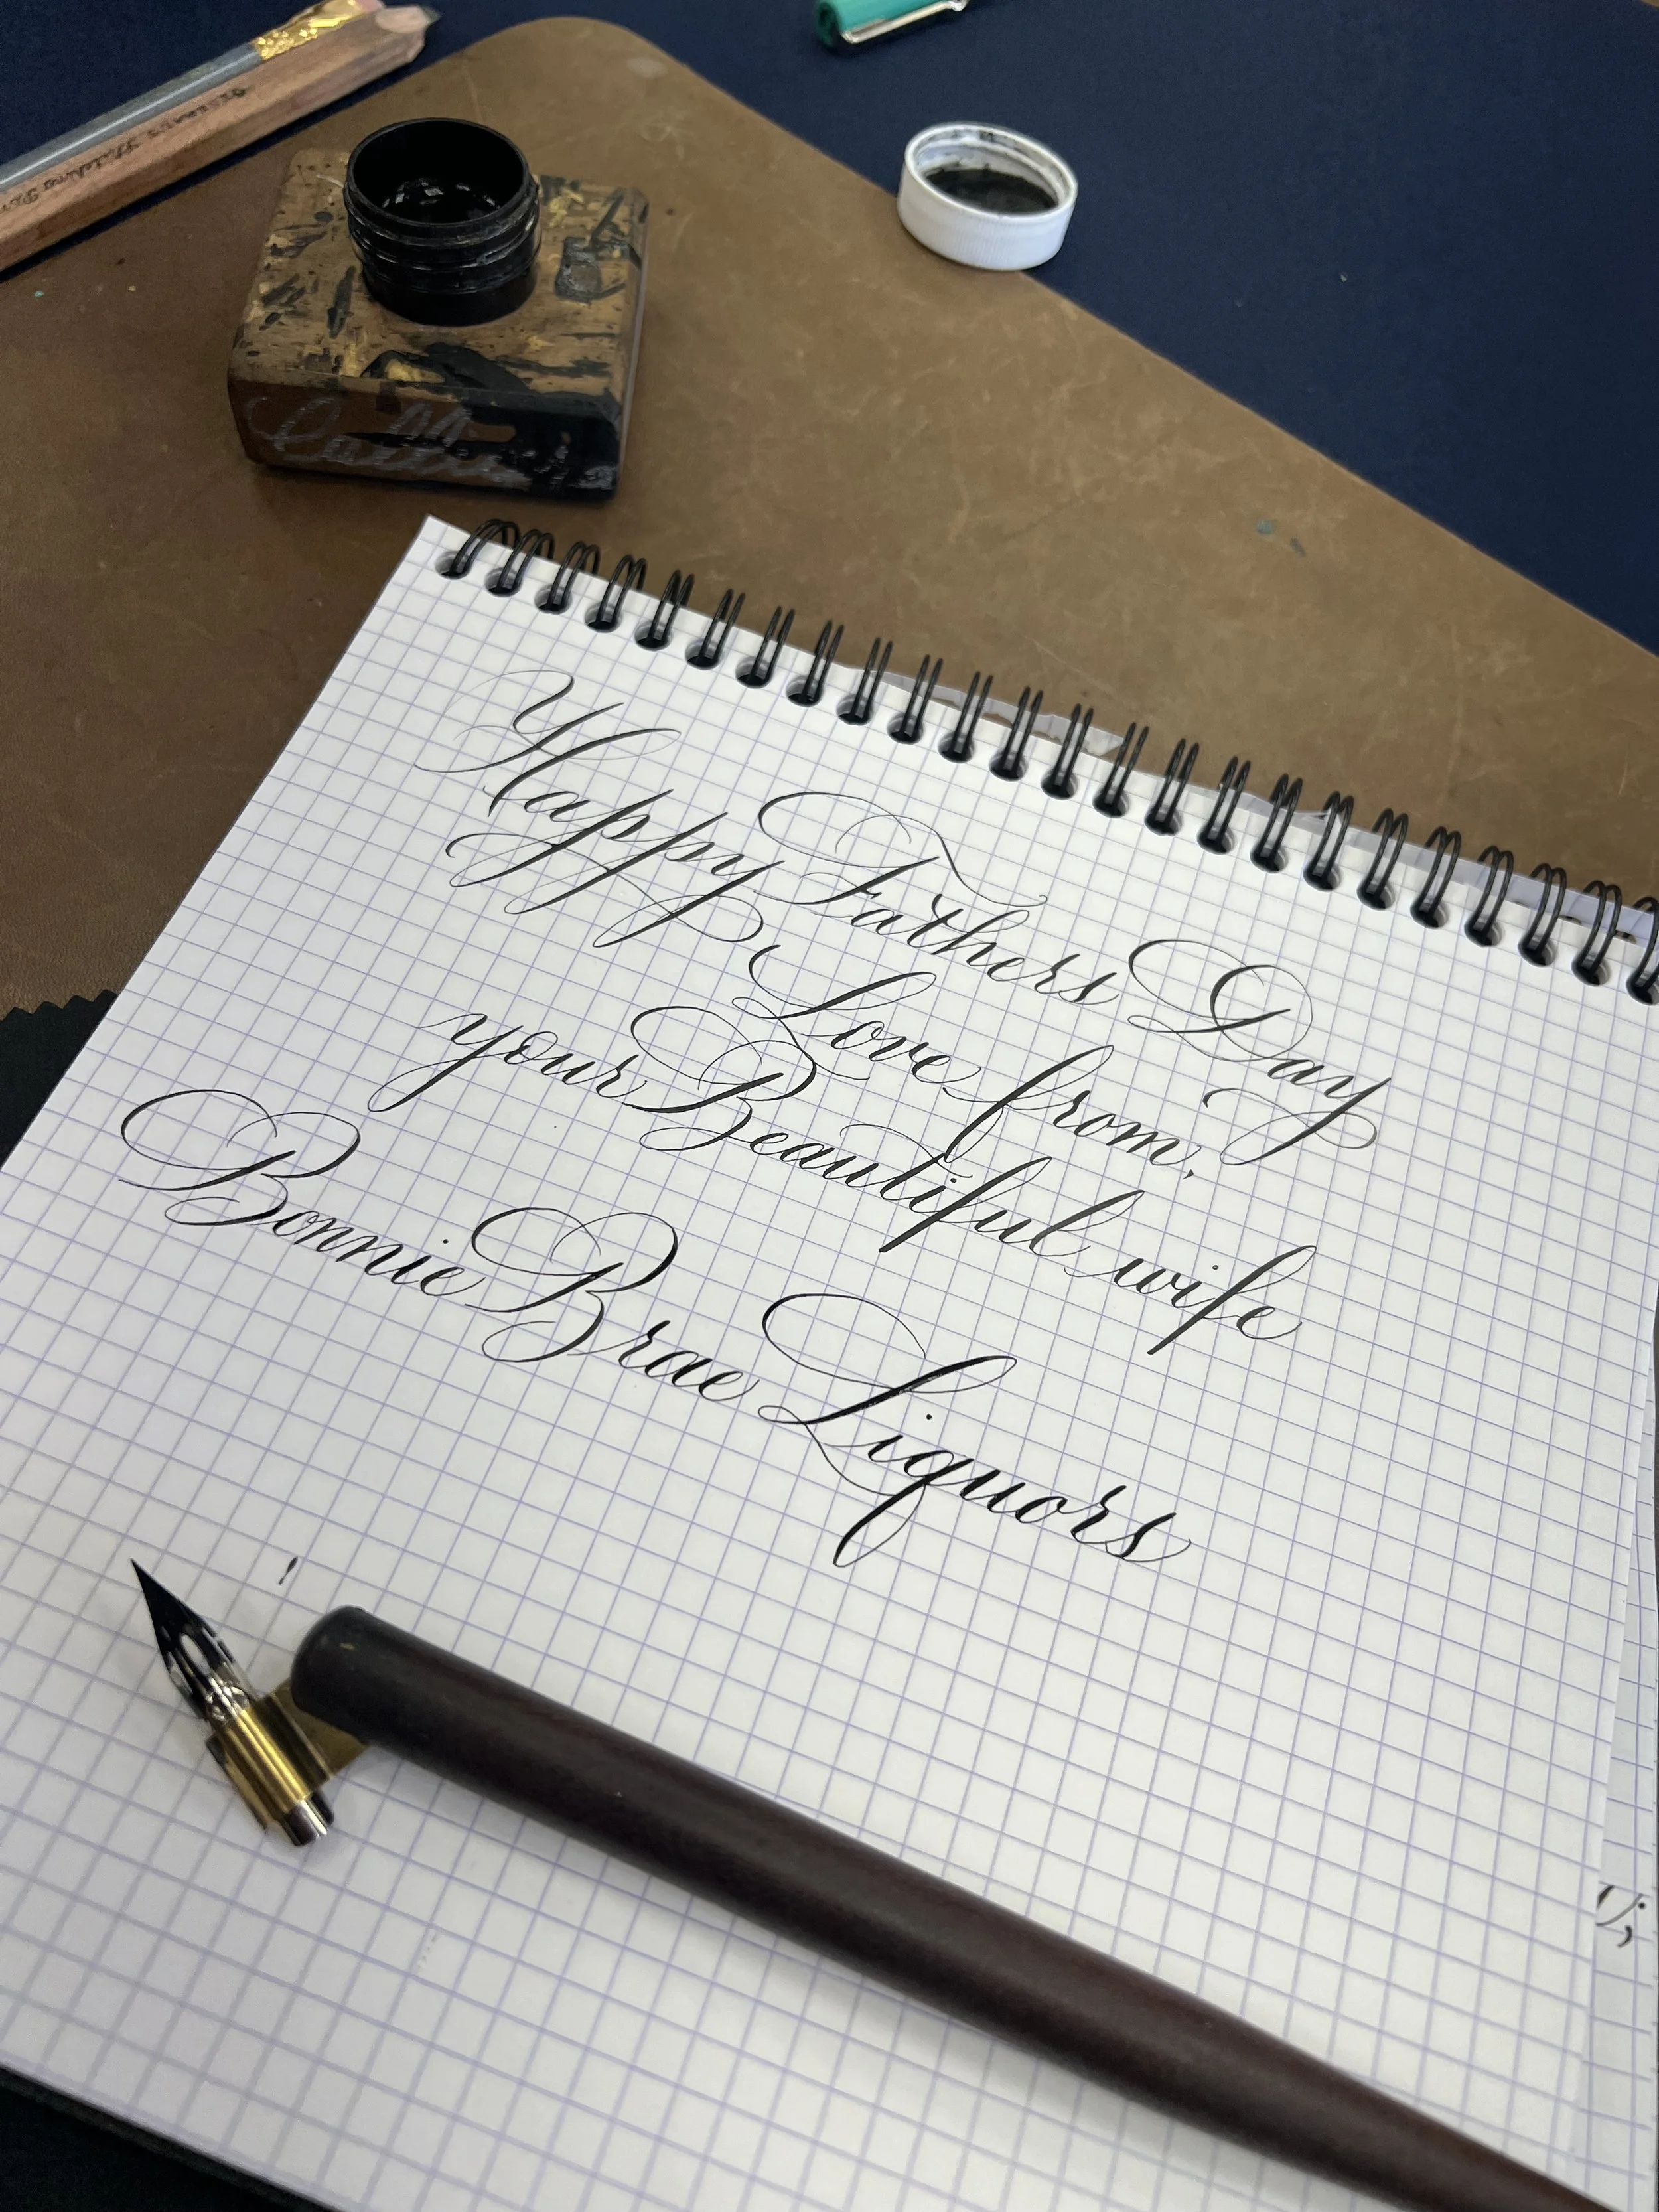 Happy Fathers Day
Love from,
your Beautiful wife
Bonnie Brae Liquors